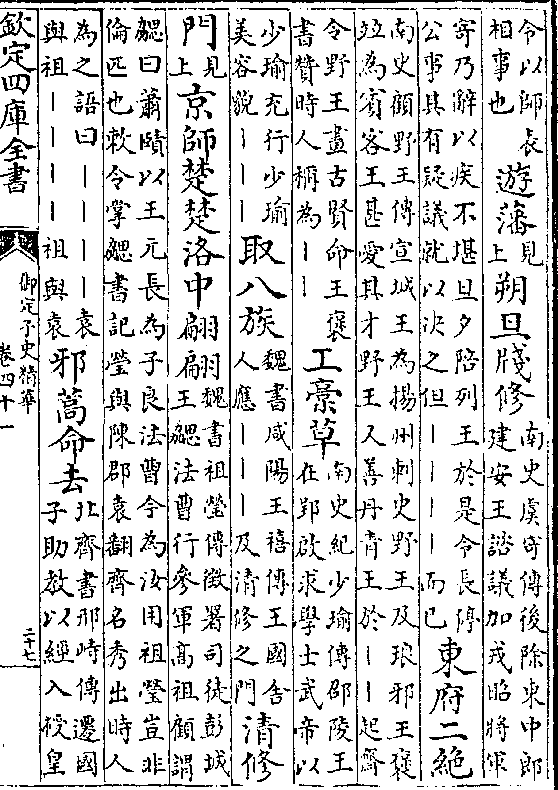 令以師長相事也 遊藩見上 朔旦牋修 南史虞寄傳後除東中郎建安王諮議加戎昭將軍
寄乃辭以疾不堪旦夕陪列王於是令長停公事其有疑議就以決之但丨丨丨丨而已 東府二絶
南史顧野王傳宣城王為揚州刺史野王及琅邪王褒竝為賓客王甚愛其才野王又善丹青王於丨丨起齋
令野王畫古賢命王褒書贊時人稱為丨丨 工藁草 南史紀少瑜傳邵陵王在郢啟求學士武帝以
少瑜充行少瑜美容貌丨丨丨 取八族 魏書咸陽王禧傳王國舍人應丨丨丨及清修之門 清修
門見上 京師楚楚洛中翩翩 魏書祖瑩傳徵署司徒彭城王勰法曹行參軍高祖顧謂
勰曰蕭賾以王元長為子良法曹今為汝用祖瑩豈非倫匹也敕令掌勰書記瑩與陳郡袁翻齊名秀出時人
為之語曰丨丨丨丨袁與祖丨丨丨丨祖與袁 邪蒿命去 北齊書邢峙傳遷國子助教以經入授皇
欽定四庫全書 御定子史精華 卷四十一 二十七